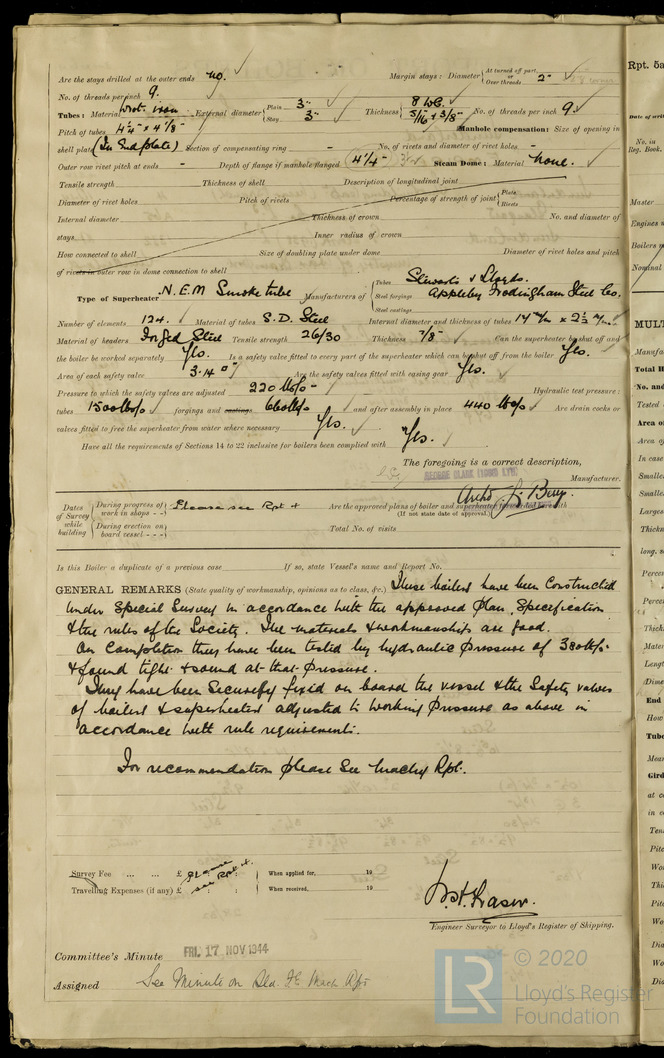 Are the stays drilled at the outer ends No. ✓ Margin stays: Diameter { At turned off part, or Over threads 2"
No. of threads per inch 9.
Tubes: Material Wrot. iron External diameter { Plain 3" Stay 3" Thickness { 8 WG. 5/16 & 3/8" No. of threads per inch 9.
Pitch of tubes 4 1/4" x 4 1/8" Manhole compensation: Size of opening in
shell plate (In End plate) Section of compensating ring - No. of rivets and diameter of rivet holes -
Outer row rivet pitch at ends - Depth of flange if manhole flanged 4 1/4" Steam Dome: Material None.
Tensile strength Thickness of shell Description of longitudinal joint
Diameter of rivet holes Pitch of rivets Percentage of strength of joint { Plate Rivets
Internal diameter Thickness of crown No. and diameter of
stays Inner radius of crown
How connected to shell Size of doubling plate under dome Diameter of rivet holes and pitch
of rivets in outer row in dome connection to shell
Type of Superheater N.E.M Smoke tube Manufacturers of { Tubes Stewarts & Lloyds. Steel forgings Appleby Frodingham Steel Co. Steel castings
Number of elements 124. Material of tubes S.D. Steel Internal diameter and thickness of tubes 17 m/m x 2 1/2 m/m.
Material of headers Forged Steel Tensile strength 26/30 Thickness 7/8" Can the superheater be shut off and
the boiler be worked separately Yes. Is a safety valve fitted to every part of the superheater which can be shut off from the boiler Yes.
Area of each safety valve 3.14 □" Are the safety valves fitted with easing gear Yes.
Pressure to which the safety valves are adjusted 220 lbs/□" Hydraulic test pressure:
tubes 1500 lbs/□ forgings and castings 660 lbs/□ and after assembly in place 440 lbs/□ Are drain cocks or
valves fitted to free the superheater from water where necessary Yes.
Have all the requirements of Sections 14 to 22 inclusive for boilers been complied with Yes.
The foregoing is a correct description,
GEORGE CLARK (1938) LTD. Manufacturer.
Dates of Survey while building { During progress of work in shops - - } Please see Rpt 4 Are the approved plans of boiler and superheater forwarded herewith
(If not state date of approval.)
{ During erection on board vessel - - - } Total No. of visits
Is this Boiler a duplicate of a previous case If so, state Vessel's name and Report No.
GENERAL REMARKS (State quality of workmanship, opinions as to class, &c.) These boilers have been constructed
under Special Survey in accordance with the approved Plan, Specification
& the rules of the Society. The materials & workmanship are good.
On completion they have been tested by hydraulic pressure of 380 lbs/□"
& found tight & sound at that pressure.
They have been securely fixed on board the vessel & the Safety valves
of boilers & superheaters adjusted to working pressure as above in
accordance with rule requirements.
For recommendation please see Machy Rpt.
Survey Fee ... ... £ Please see Rpt 4. When applied for, 19
Travelling Expenses (if any) £ When received, 19
Engineer Surveyor to Lloyd's Register of Shipping.
Committee's Minute FRI. 17 NOV 1944
Assigned See Minute on Sld. F.E. Mach Rpt
Rpt. 5a
Date of writ
No. in
Reg. Book
Master
Engines m
Boilers m
Nominal
MULT
Manufa
Total H
No. and
Tested
Area o
Area of
In case
Smalles
Smalles
Largest
Thickn
long. s
Percen
Percen
Thickn
Mater
Length
Dimen
End
How
Tube
Mean
Gird
at c
in c
Ten
Pitc
Wo
Thi
Pitc
Wo
Dia
Wo
Dia
LR © 2020
Lloyd's Register
Foundation